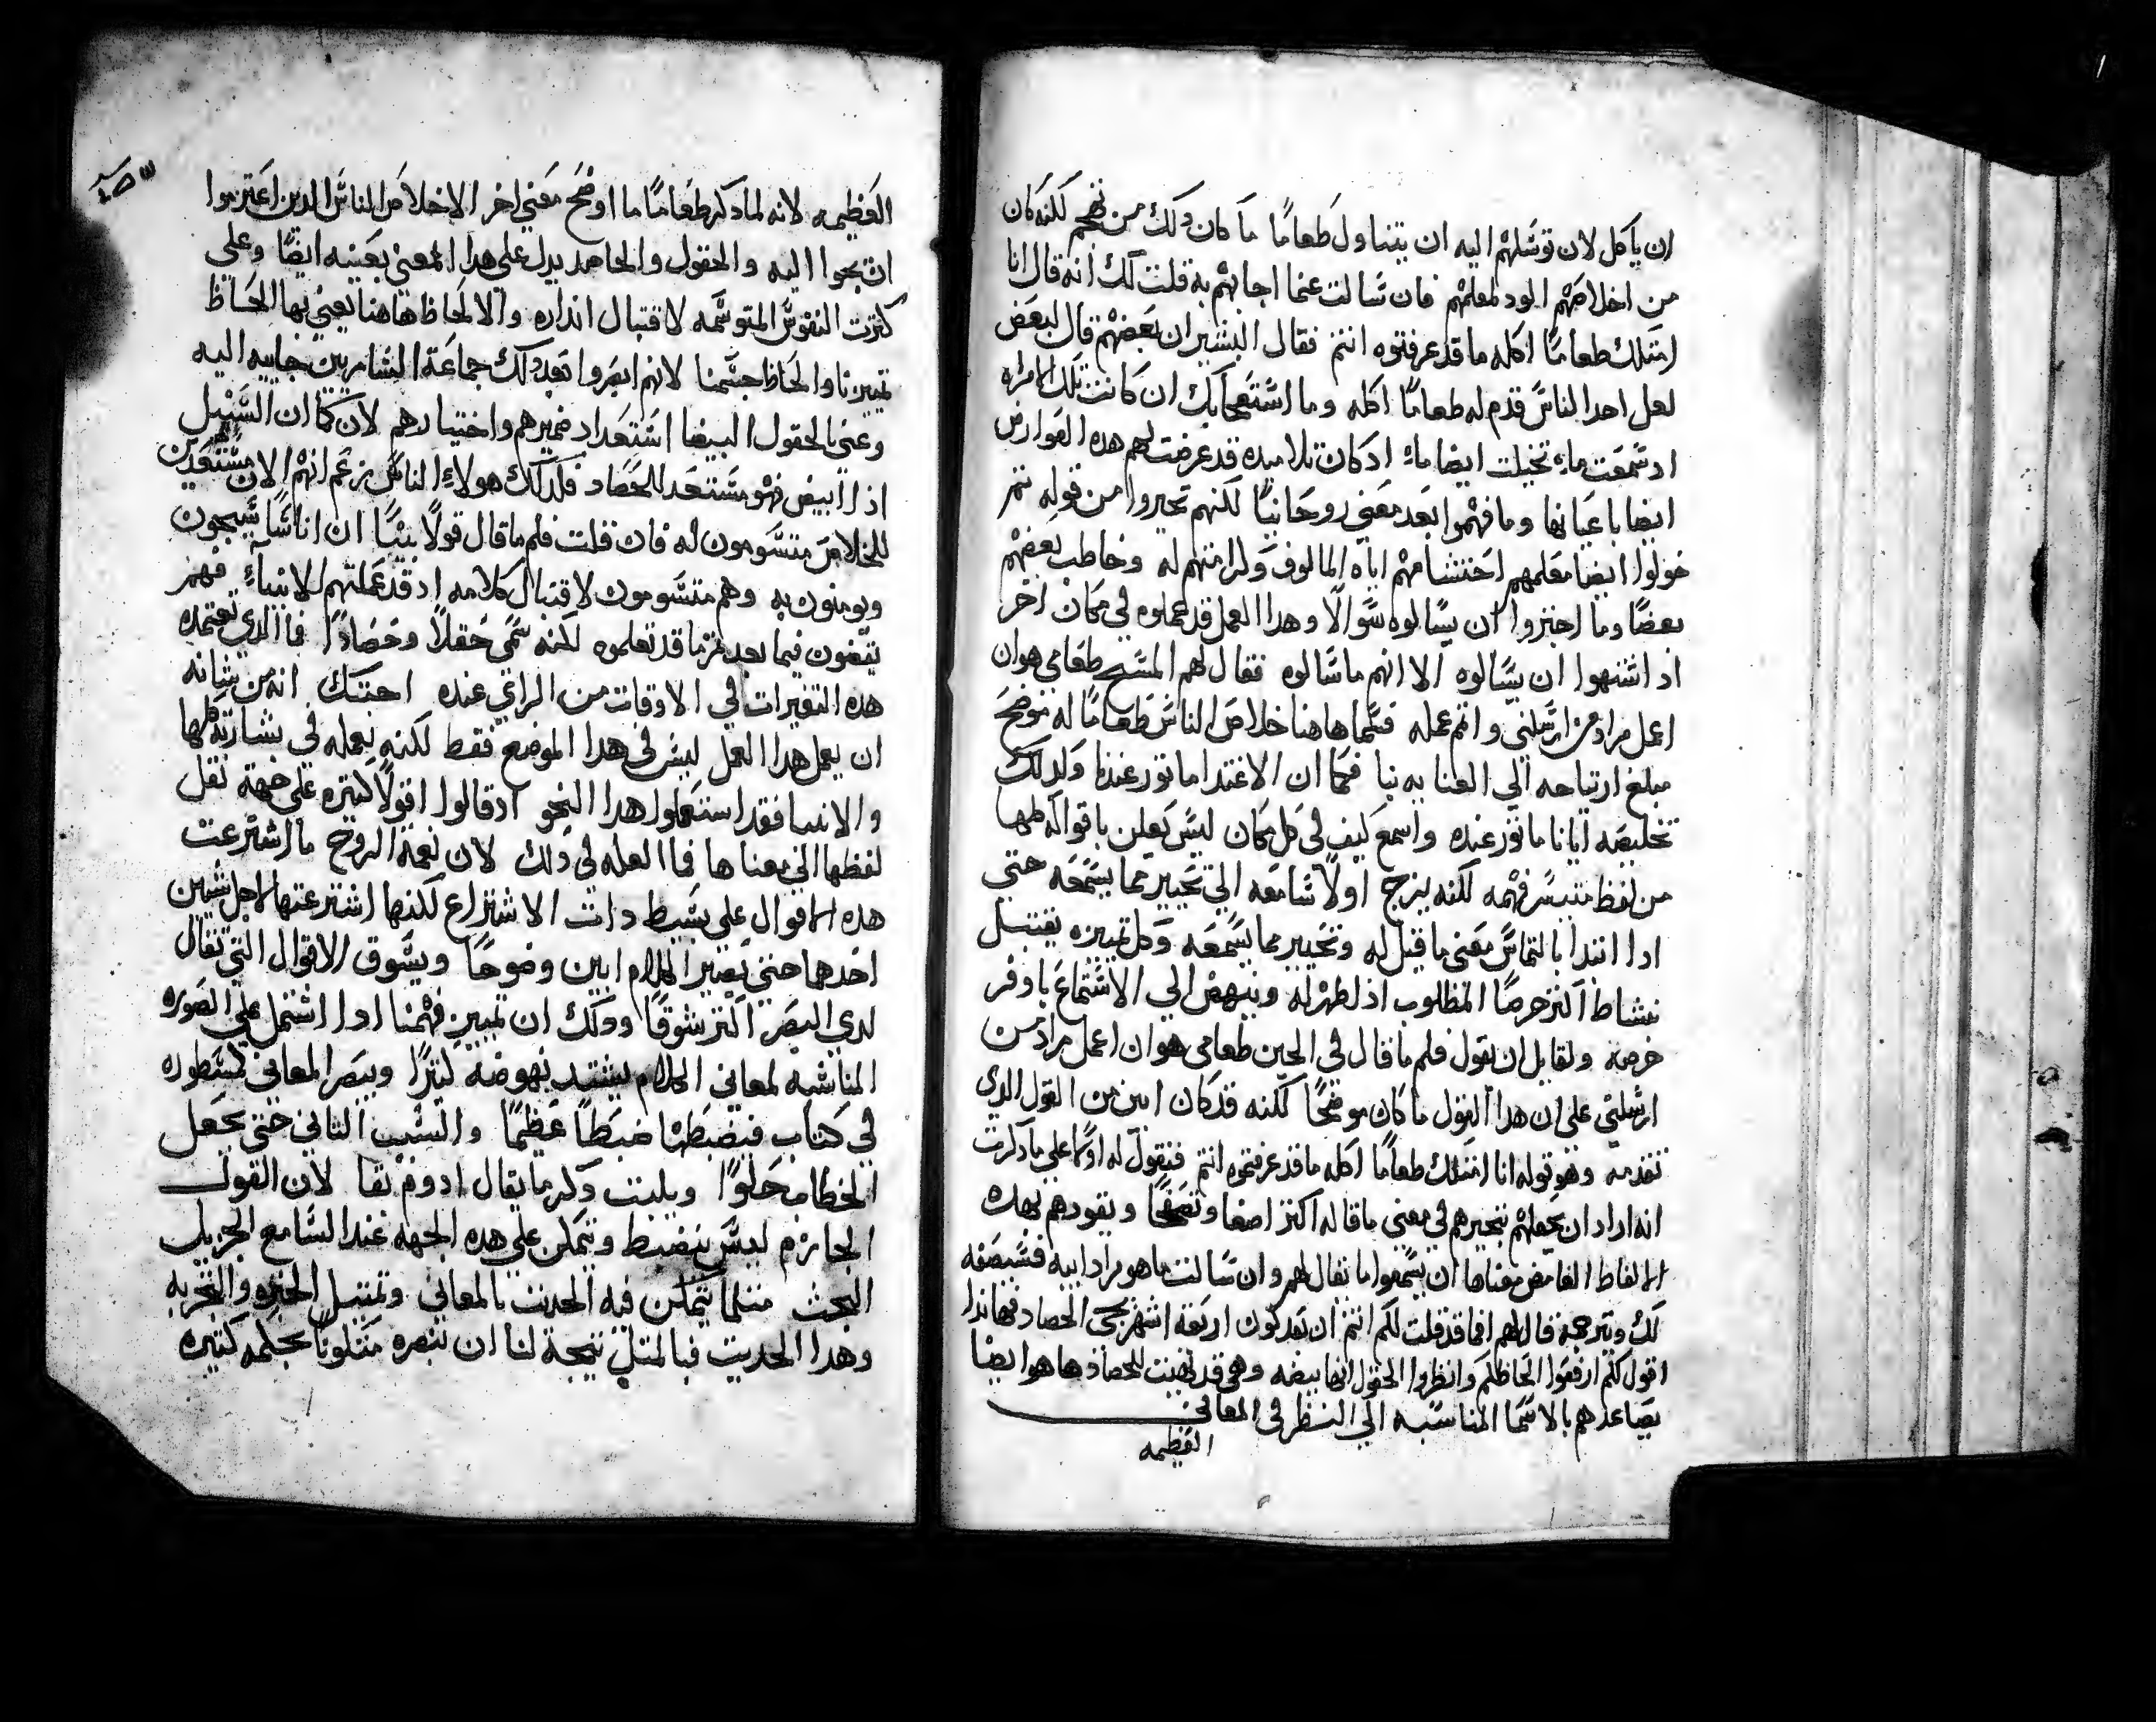 ان ياكل لان توسلهم اليه ان يتناول طعامًا ما كان دلك من نهمم لكنه كان
من اخلاصهم الود لمعلمهم فان سالت عما اجابهم به قلت لك انه قال انا
امتلك طعامًا اكله ما قد عرفتوه انتم فقال البشير ان بعضهم قال لبعض
لعل احد الناس قدم له طعامًا اكله وما استعجابك ان كانت تلك الامراه
اد سمعت ماء تخيلت ايضا ماءً اد كان تلاميده قد عرضت لهم هده العوارض
ايضا باعيانها وما فهموا بعد معني روحانيًا لكنهم تحيروا من قوله تم
خولوا ايضا معلمهم احتشامهم اياه المالوف ولزامتهم له وخاطب بعضهم
بعضًا وما اجتروا ان يسالوه سوالًا وهدا العمل قد عملوه في مكان اخر
اد اشتهوا ان يسالوه الا انهم ما سالوه فقال لهم المسيح طعامي هو ان
اعمل مراد من ارسلني واتمم عمله فسما هاهنا خلاص الناس طعامًا له موضح
مبلغ ارتياحه الي العنايه بنا فكما ان الاغتدا ماتور عندنا ولدلك
تخليصه ايانا ماتور عنده واسمع كيف في كل مكان ليس يعلن باقواله كلها
من لفظ متيسر فهمه لكنه يزج اولًا سامعه الي تحيير مما يسمعه حتي
ادا ابتدا بالتماس معني ما قيل له وتحيير مما يسمعه وكل تمييزه يقتبل
نشاط اكتر حرصًا المطلوب اد لظهر له وينهض الي الاستماع باوفر
حرصه ولقايل ان يقول فلم ما قال في الحين طعامي هو ان اعمل مراد من
ارسلني علي ان هدا القول ما كان موضحًا لكنه قد كان ابين من القول الدي
تقدمه وهو قوله انا امتلك طعامًا اكله ما قد عرفتموه انتم فنقول له اولًا علي ما دكرت
انه اراد ان يجعلهم بتحيرهم في معني ما قاله اكتر اصغا وتصفحًا ويقودهم بهده
الالفاظ الغامض معناها ان يسمعوا ما يقال لهم وان سالت ما هو مراد ابيه فسيصفه
لك ويترجمه قال لهم افما قد قلت لكم انتم ان بعد كون اربعة اشهر يجي الحصاد فها ندا
اقول لكم ارفعوا الحاظكم وانظروا الحقول انها بيضه وهي قد تهيت للحصاد ها هو ايضا
يصاعدهم بالاسما المناسبه الي النظر في المعاني
العظيمه
العظيمه لانه لما دكر طعامًا ما اوضح معني اخر الا خلاص الناس الدين اعتزموا
ان يجوا اليه والحقول والحاصد يدل علي هدا المعني بعينه ايضًا وعلي
كترت النفوس المتوسمه لاقتبال انداره والالحاظ هاهنا يعني بها الحاظ
تمييزنا والحاظ جسمنا لانهم ابصروا بعد دلك جماعة السامريين جاييه اليه
وعني بالحقول البيضا استعداد ضميرهم واختيارهم لان كما ان السنبل
ادا ابيض فهو مستعد للحصاد فلدلك هولاء الناس زعم انهم الان مستعدين
للخلاص متسومون له فان قلت فلم ما قال قولًا بينًا ان اناسًا سيجون
ويومنون به وهم متسومون لاقتبال كلامه اد قد عملتهم الانبياء فهم
يتقون فيما بعد تمرما قد تعلموه لكنه سمي حقلًا وحصادًا فما الدي تعتمده
هده التغيرات في الاوقات من الراغي عنده احتتك انه من شانه
ان يعمل هدا العمل ليس في هدا الموضع فقط لكنه يعمله في بشارته كلها
والانبيا فقد استعملوا هدا النحو اد قالوا اقولًا كتيره علي جهة نقل
لفظها الي معناها فما العله في دلك لان نعمة الروح ما اشترعت
هده الاقوال علي بسيط دات الاشتراع لكنها اشترعتها لاجل شيين
احدهما حتي يصير الكلام ابين وضوحًا ويسوق الاقوال التي تقال
لدي البصر اكتر شوقًا ودلك ان تمييز فهمنا ادا اشتمل علي الصوره
المناسبه لمعاني الكلام يشتد نهوضه كتيرًا ويبصر المعاني كمسطوره
في كتاب فيضبطها ضبطًا عظيمًا والسبب التاني حتي يجعل
الخطاب حلوًا ويلبت دكر ما يقال ادوم بقا لان القول
الجازم ليس ينضبط ويتمكن علي هده الجهه عند السامع الجزيل
البحت متلما يتمكن فيه الحديت بالمعاني وتمتيل الخبره والتجربه
وهدا الحديت فبالمتل نتيجة لنا ان نبصره متلوبًا بحكمه كتيره